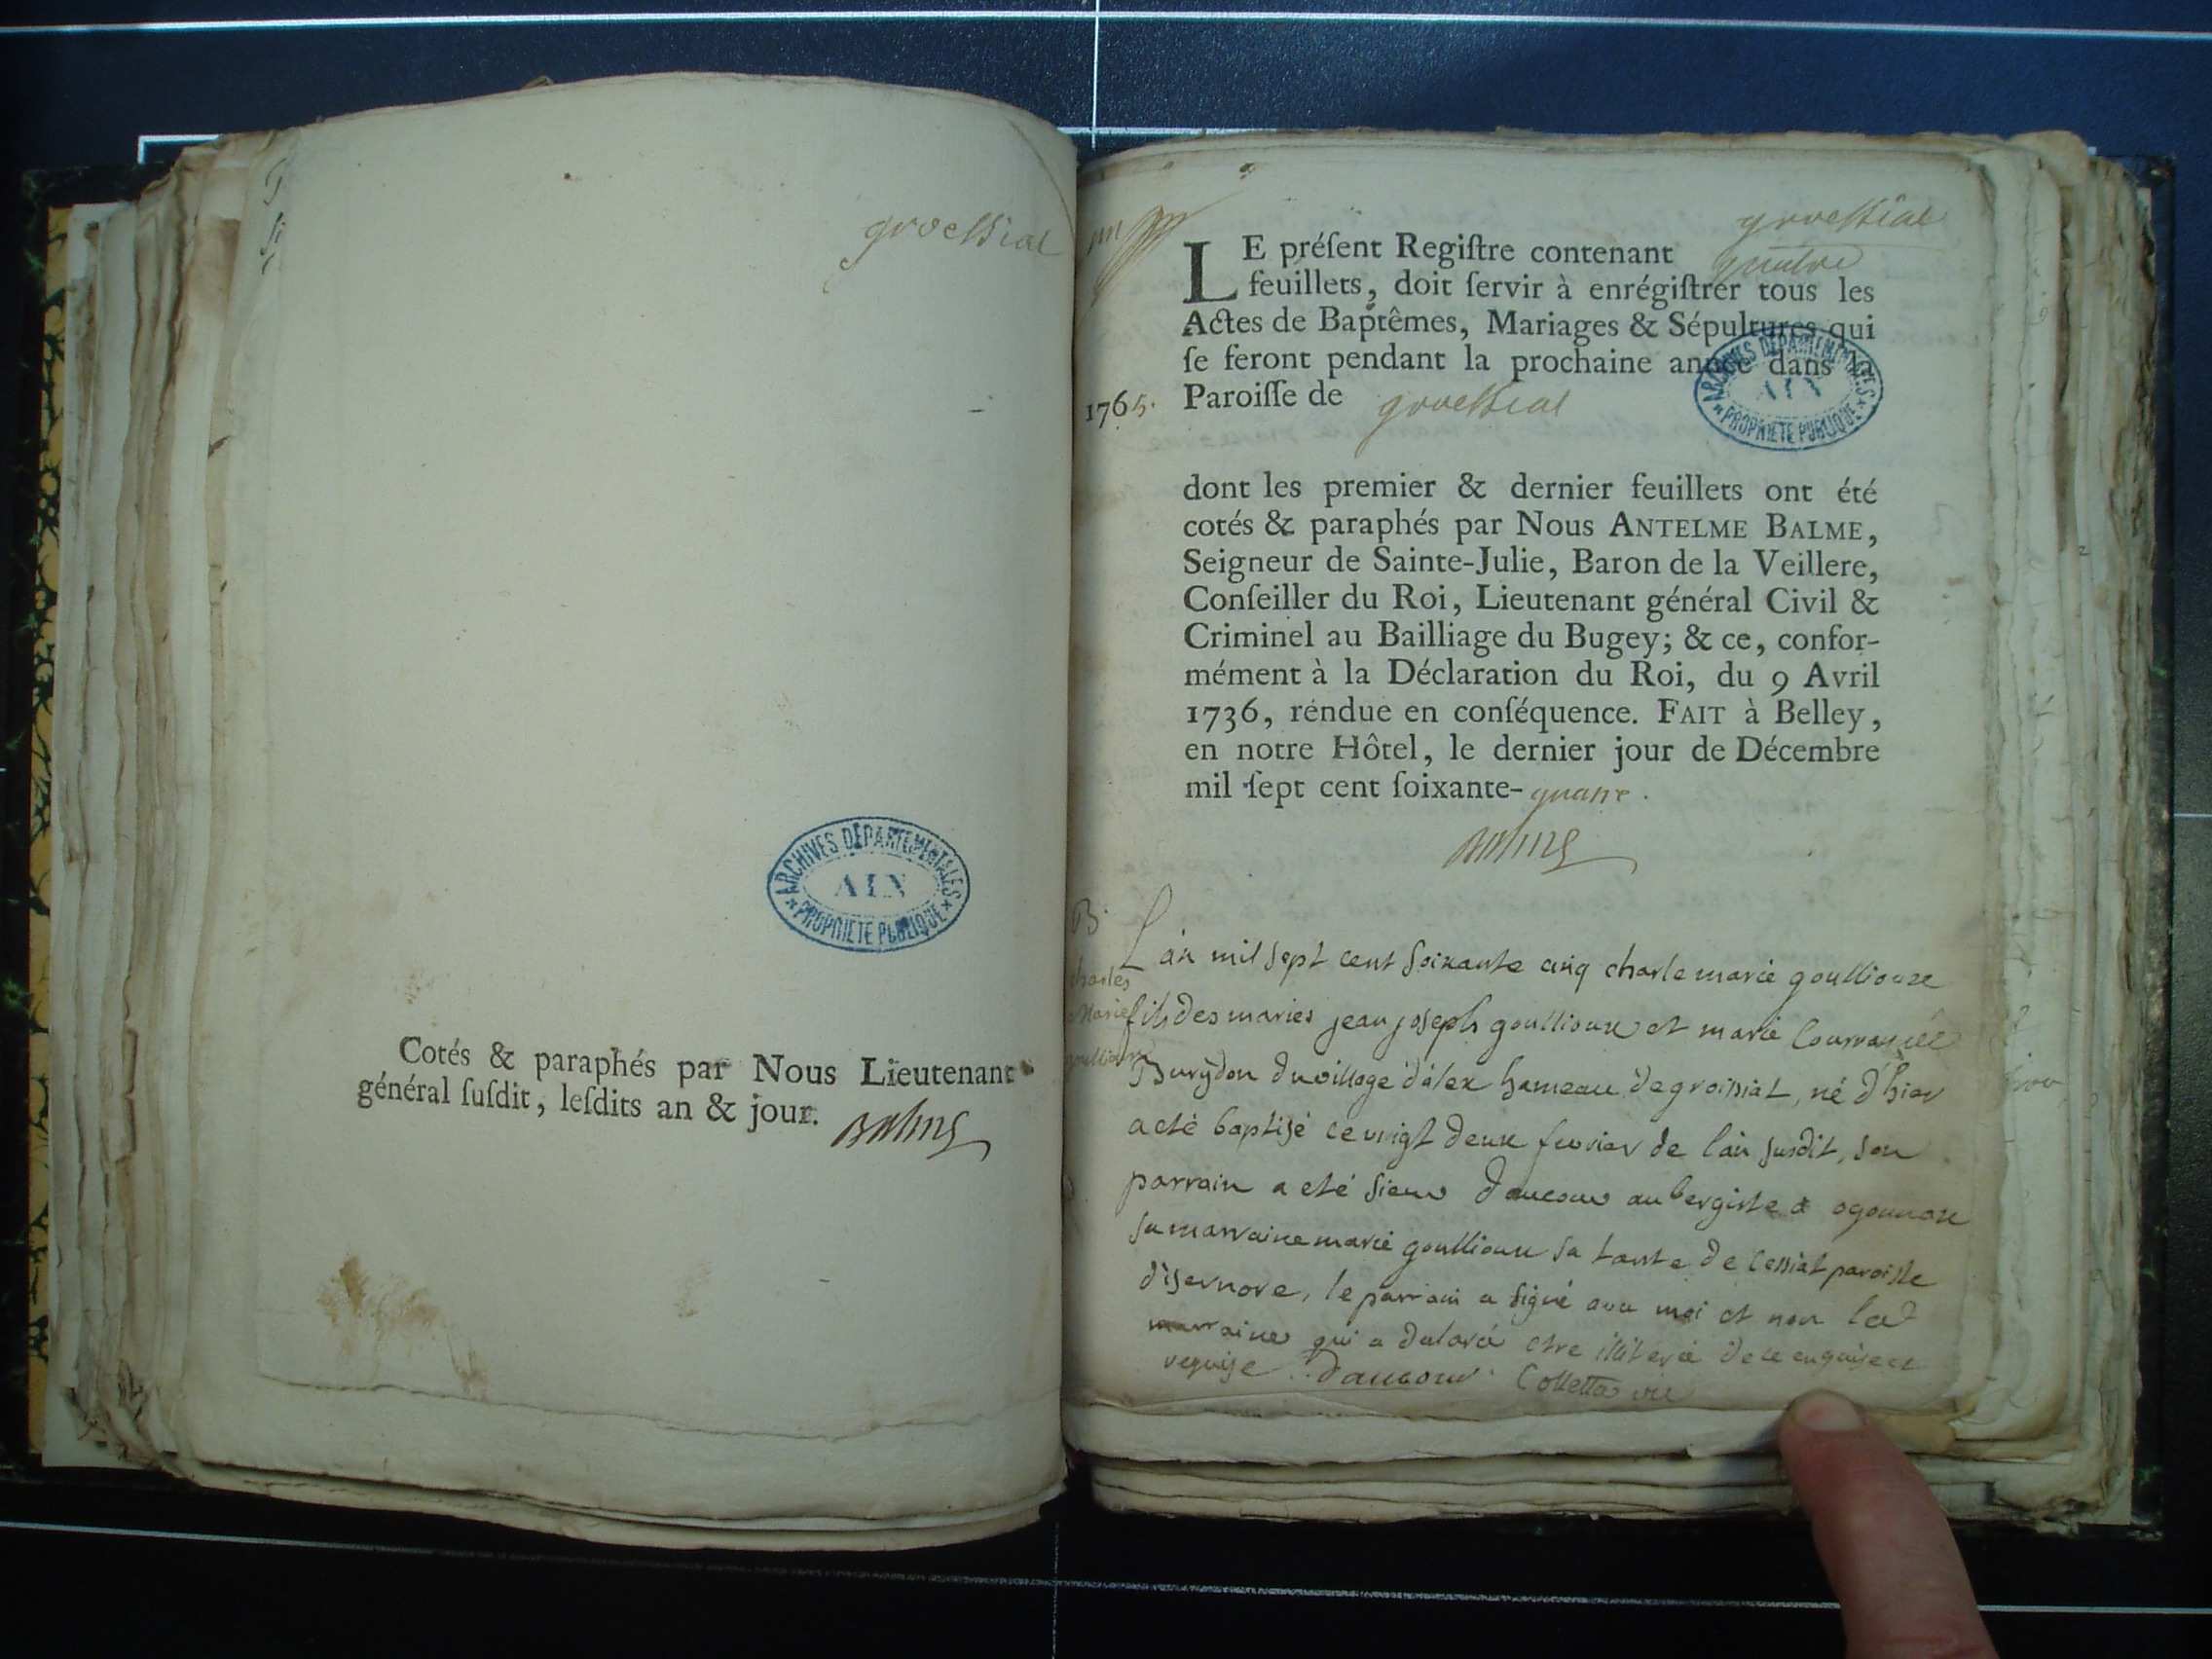 groessiat
ARCHIVES DÉPARTEMENTALES
AIN
PROPRIETE PUBLIQUE
Cotés & paraphés par Nous Lieutenant
général ſuſdit, leſdits an & jour.
Balme
groessiat
LE préſent Regiſtre contenant quatre
feuillets, doit ſervir à enrégiſtrer tous les
Actes de Baptêmes, Mariages & Sépultures qui
ſe feront pendant la prochaine année dans la
1765. Paroiſſe de groessiat
ARCHIVES DÉPARTEMENTALES
AIN
PROPRIETE PUBLIQUE
dont les premier & dernier feuillets ont été
cotés & paraphés par Nous ANTELME BALME,
Seigneur de Sainte-Julie, Baron de la Veillere,
Conſeiller du Roi, Lieutenant général Civil &
Criminel au Bailliage du Bugey; & ce, confor-
mément à la Déclaration du Roi, du 9 Avril
1736, rendue en conſéquence. FAIT à Belley,
en notre Hôtel, le dernier jour de Décembre
mil ſept cent ſoixante-quatre.
Balme
B.
charles
Marie
goullioux
L'an mil sept cent soixante cinq charle marie goullioux
fils des maries jean joseph goullioux et marie
Burydon du village d'alex hameau de groissiat, né d'hier
a eté baptisé ce vingt deux fevrier de l'an susdit, son
parrain a eté sieur daucour aubergiste a ogonnax
sa marraine marie goullioux sa tante de cessiat paroisse
d'isernore, le parrain a signé avec moi et non la
marraine qui a declaré etre iliterée de ce enquise et
requise. Daucour Colletta vic